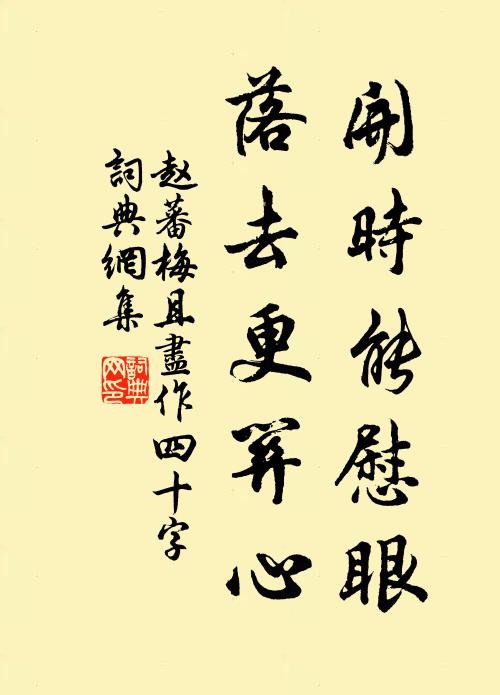 開時能慰眼
落去更關心
赵蕃梅且盡作四十字
詞典網集
詞典網印